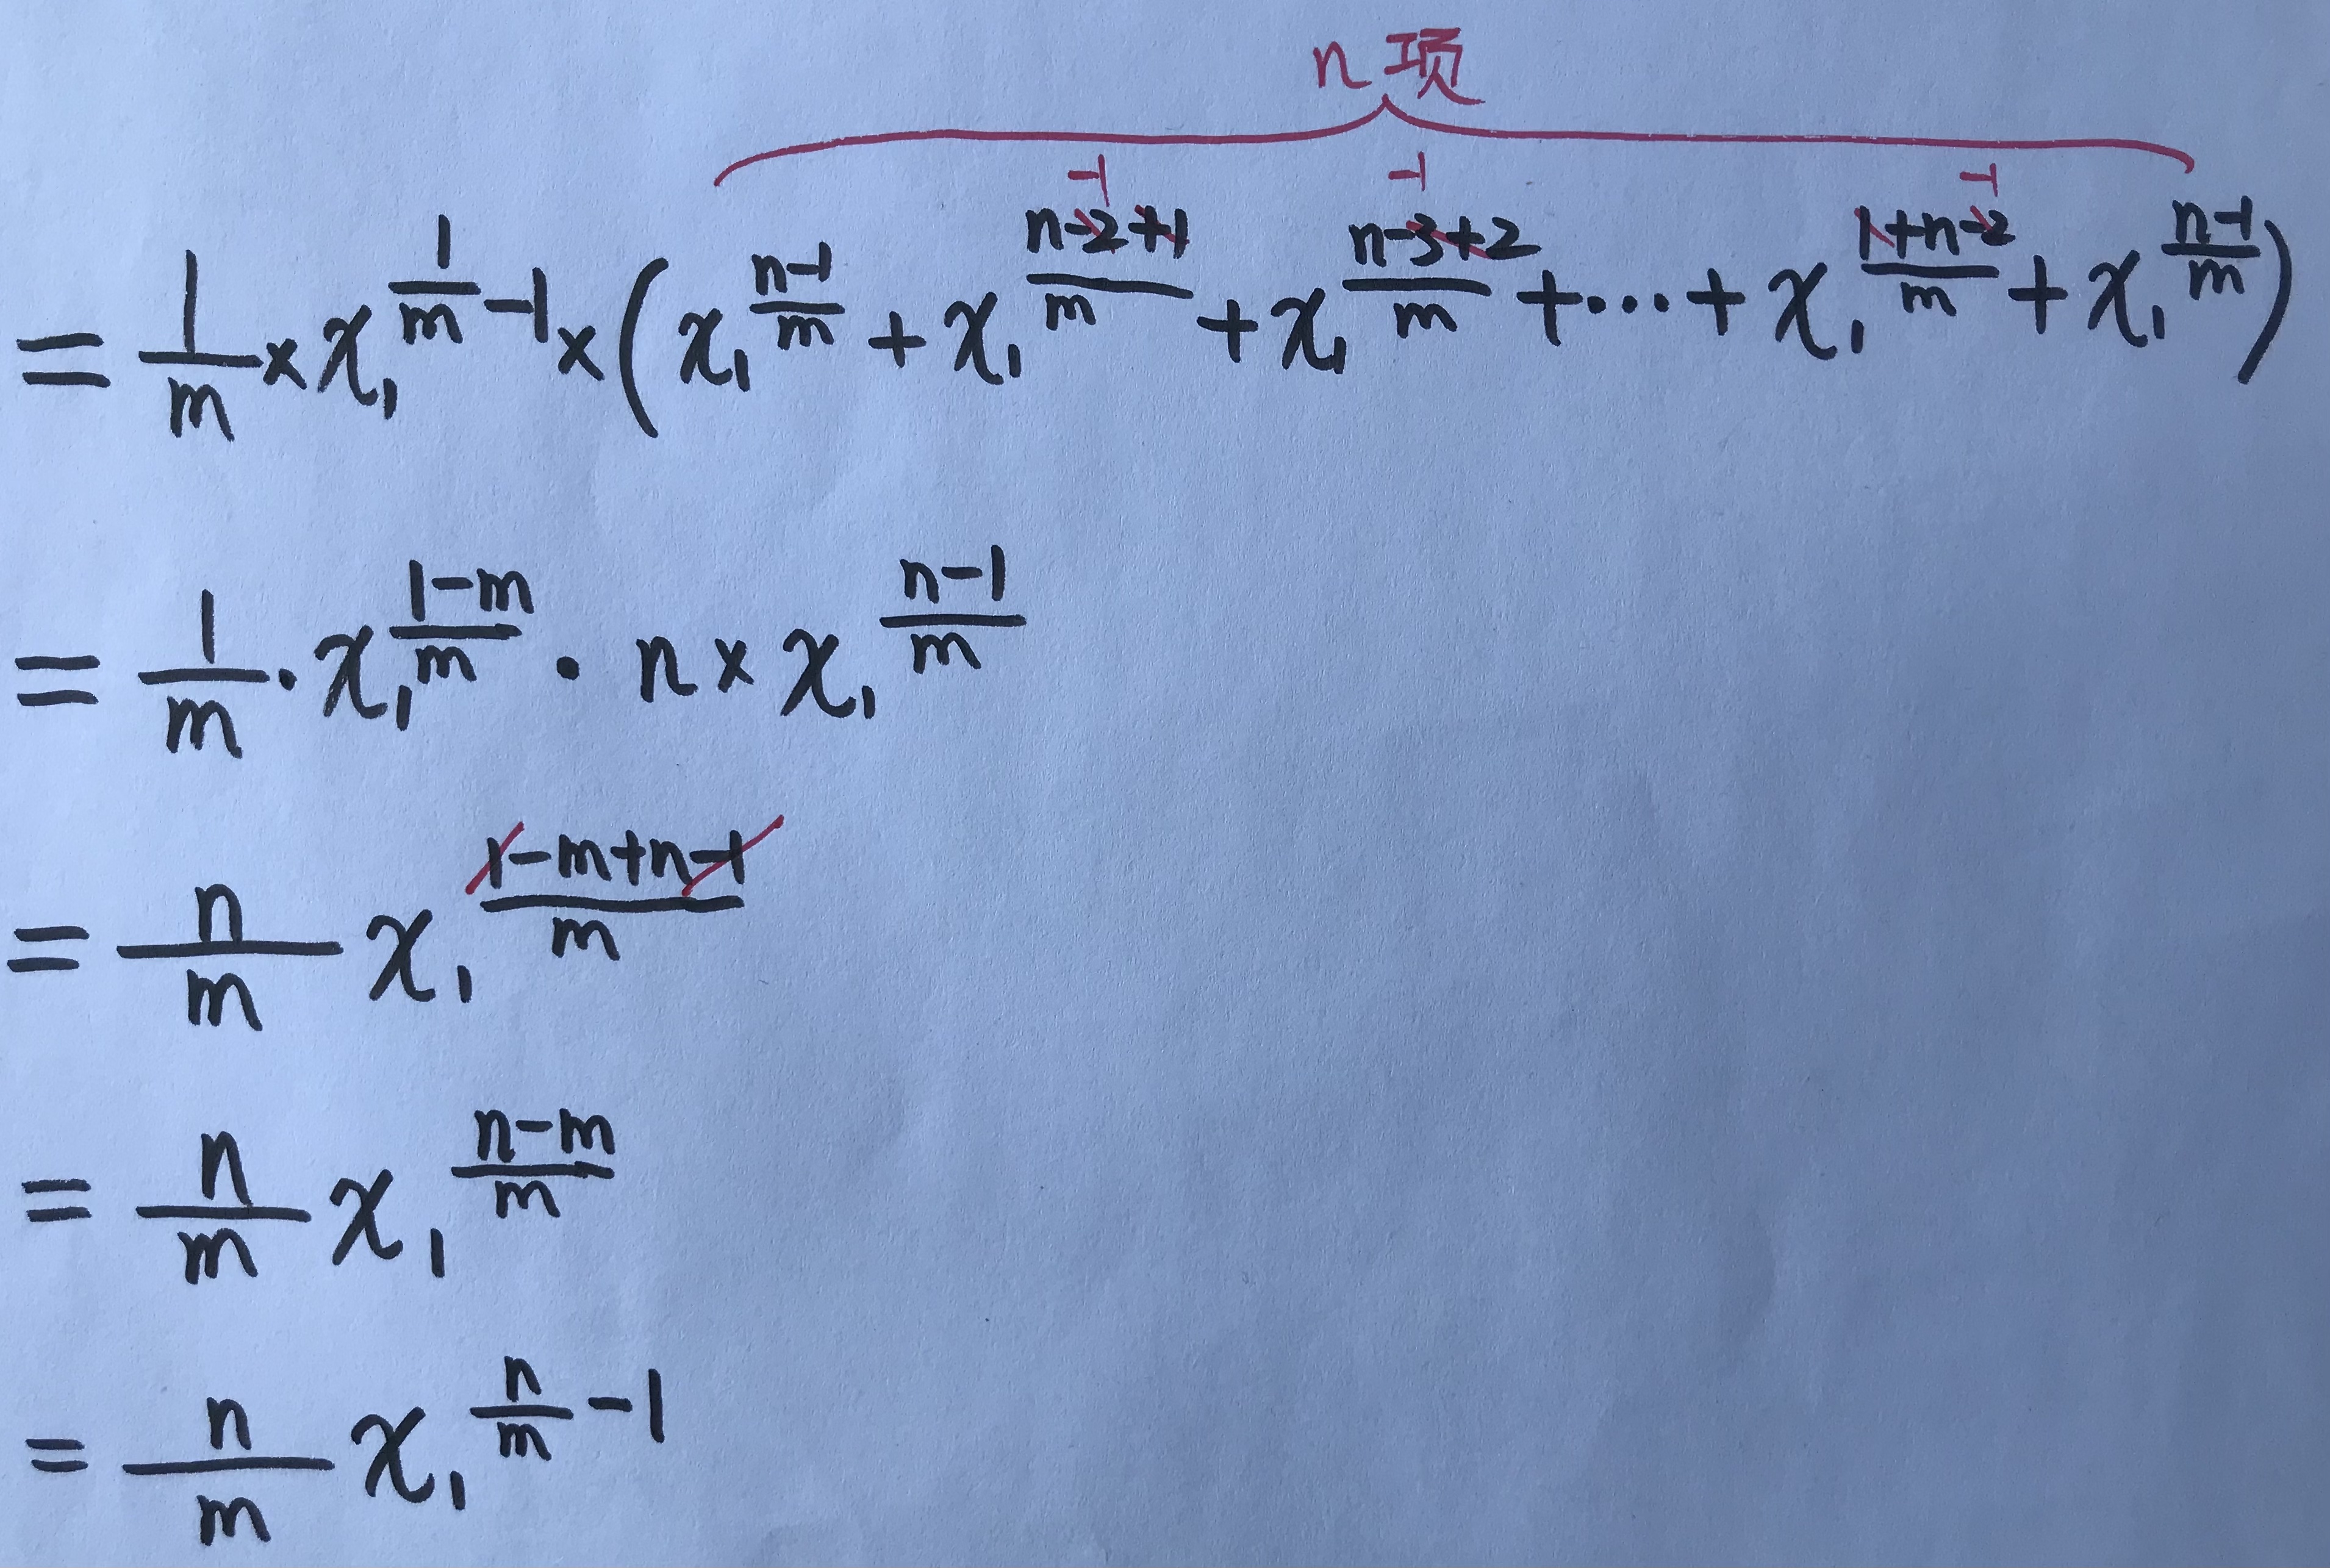 n 项
-1 -1 -1
= \frac{1}{m} × x_1^{\frac{1}{m}-1} × ( x_1^{\frac{n-1}{m}} + x_1^{\frac{n-2+1}{m}} + x_1^{\frac{n-3+2}{m}} + ··· + x_1^{\frac{1+n-2}{m}} + x_1^{\frac{n-1}{m}} )
= \frac{1}{m} · x_1^{\frac{1-m}{m}} · n × x_1^{\frac{n-1}{m}}
= \frac{n}{m} x_1^{\frac{1-m+n-1}{m}}
= \frac{n}{m} x_1^{\frac{n-m}{m}}
= \frac{n}{m} x_1^{\frac{n}{m}-1}